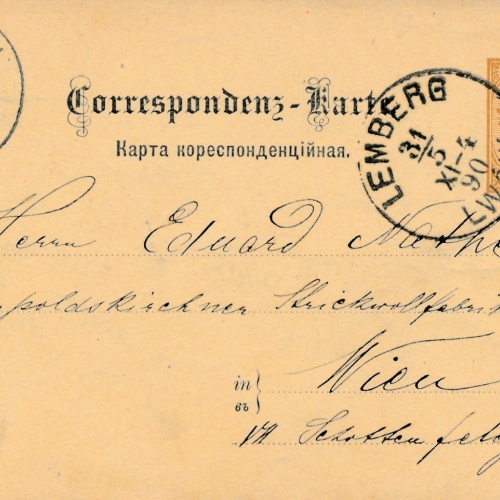 Correspondenz-Karte
Карта кореспонденційная.
LEMBERG
31/5
XI-4
90
LW
Herrn Eduard Nathe
poldskirchner Strickwollfabrik
in Wien
въ
VII Schottenfeldg